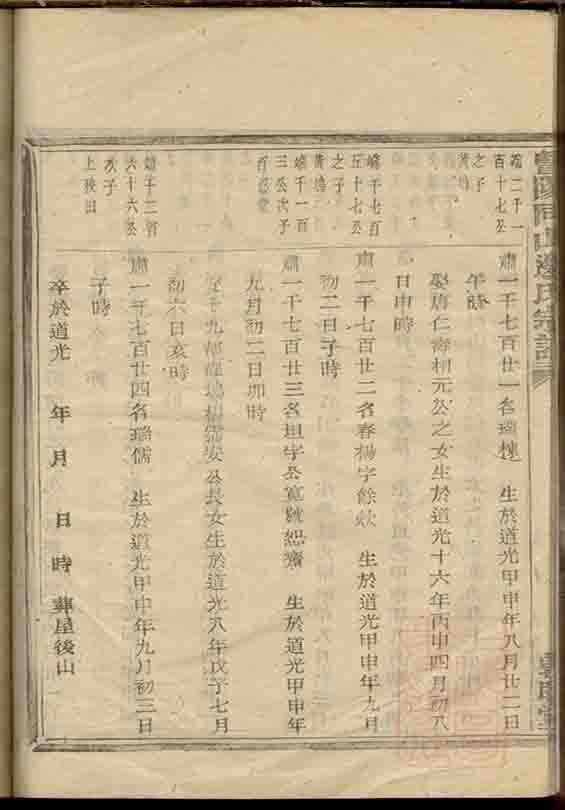 暨陽同山邊氏宗譜
端二千一
百十七公
之子
黃塢
肅一千七百廿一名瑞棟 生於道光甲申年八月廿二日
午時
娶唐仁壽相元公之女生於道光十六年丙申四月初八
日申時
端千七百
五十七公
之子
黃塢
肅一千七百廿二名春楊字餘欽 生於道光甲申年九月
初二日子時
端千一百
三公次子
肅一千七百廿三名坦字公寬號恕齋 生於道光甲申年
九月初二日卯時
儒安公長女生於道光八年戊子七月
初六日亥時
端千三百
六十六公
次子
上秧田
肅一千七百廿四名瑞儒 生於道光甲申年九月初三日
子時
卒於道光 年 月 日 時 葬屋後山